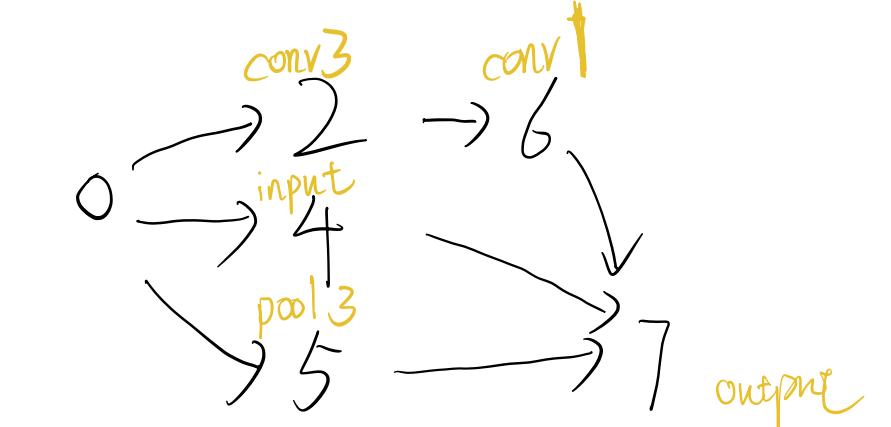 conv3 conv1
2 6
0
input
4
pool3
5 7
output